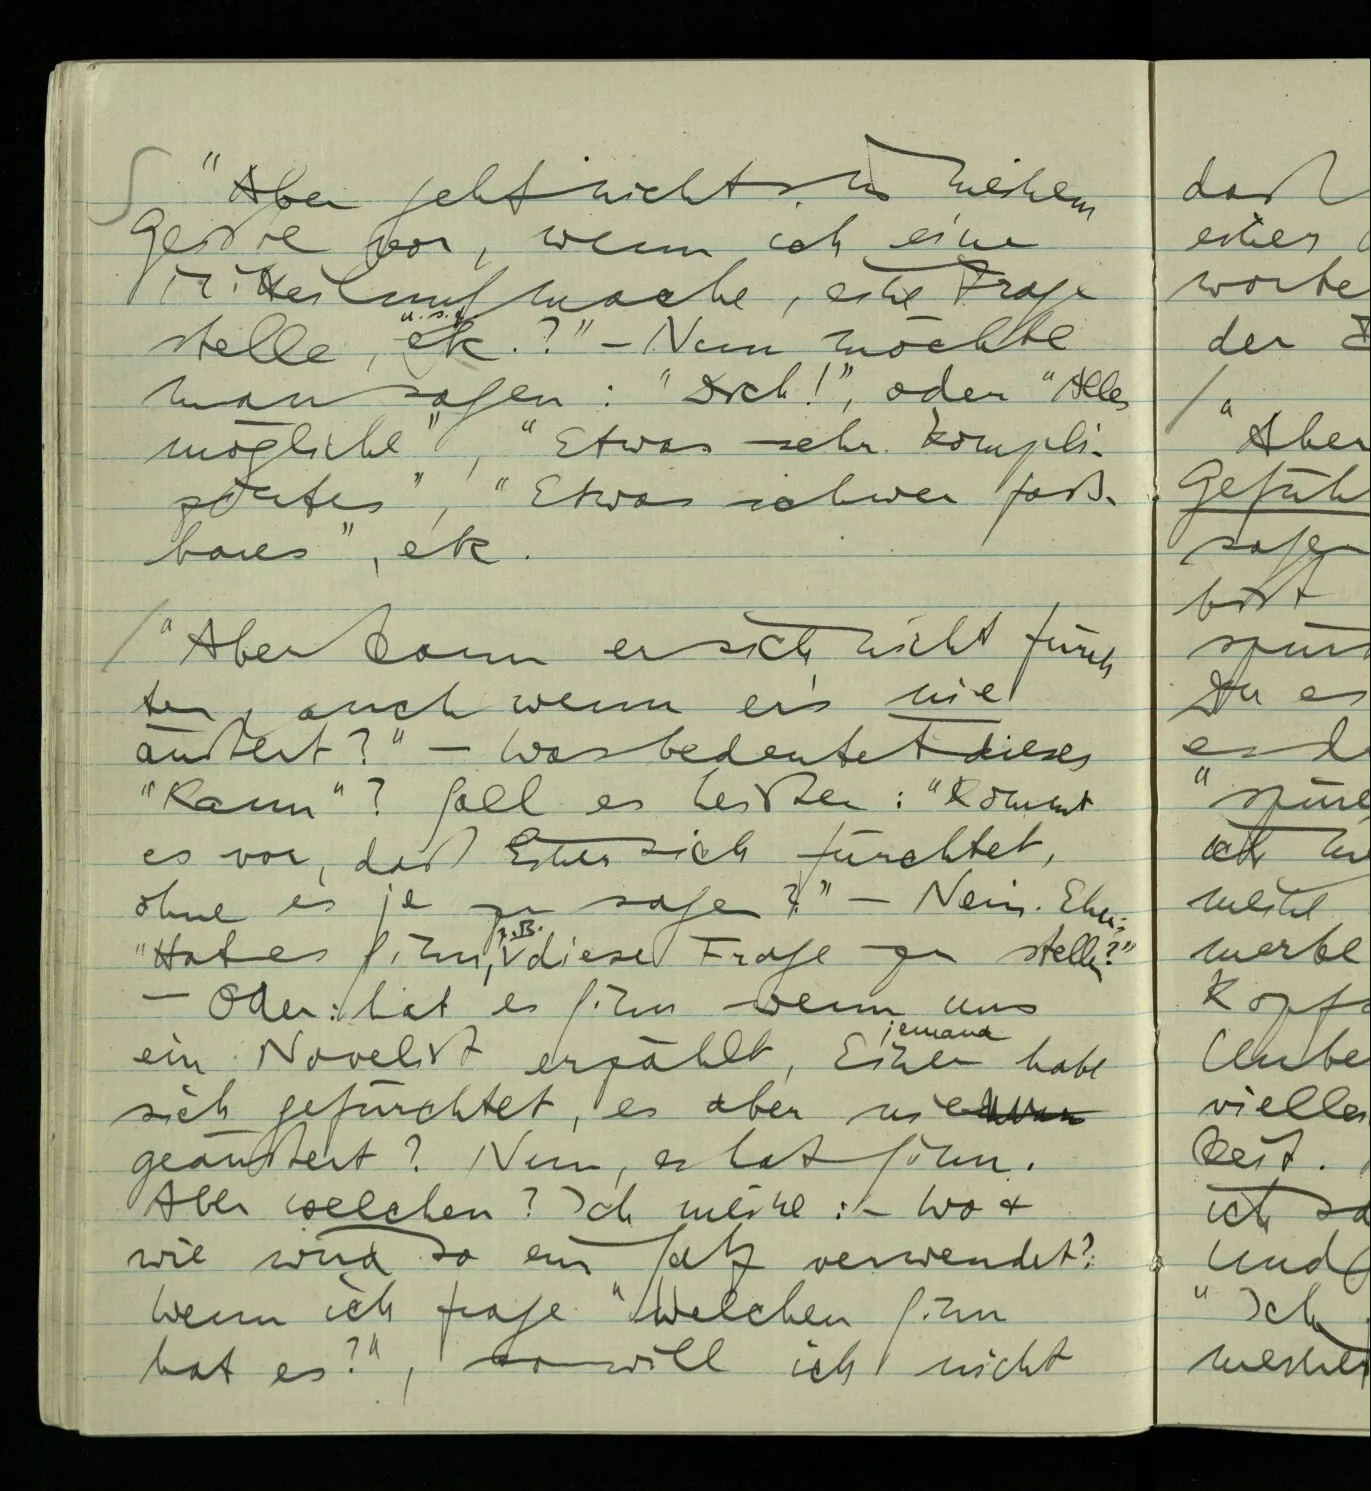 "Aber geht nichts in meinem
Geiste vor, wenn ich eine
Mitteilung mache, eine Frage
u.s.w.
stelle, etc.?" – Nun möchte
man sagen: "Doch!", oder "Alles
mögliche", "Etwas sehr kompli-
ziertes", "Etwas schwer faß-
bares", etc.
/ "Aber kann er sich nicht fürch
ten, auch wenn er's nie
äußert?" – Was bedeutet dieses
"Kann"? Soll es heißen: "Kommt
es vor, daß Einer sich fürchtet,
ohne es je zu sagen?" – Nein. Eher:
z.B.
"Hat es Sinn, diese Frage zu stellen?"
– Oder: hat es Sinn wenn uns
jemand
ein Novelist erzählt, Einer habe
sich gefürchtet, es aber nie
geäußert? Nun, es hat Sinn.
Aber welchen? Ich meine: – Wo &
wie wird so ein Satz verwendet?
Wenn ich frage "Welchen Sinn
hat es?", so will ich nicht
daß
einer
worte
der
/ "Aber
Gefühl
sagen
bist
spür
Du es
es
"spüre
ich
meine
merke
Kopf
Unbe
vielle
keit.
ich
und
"Ich
meine